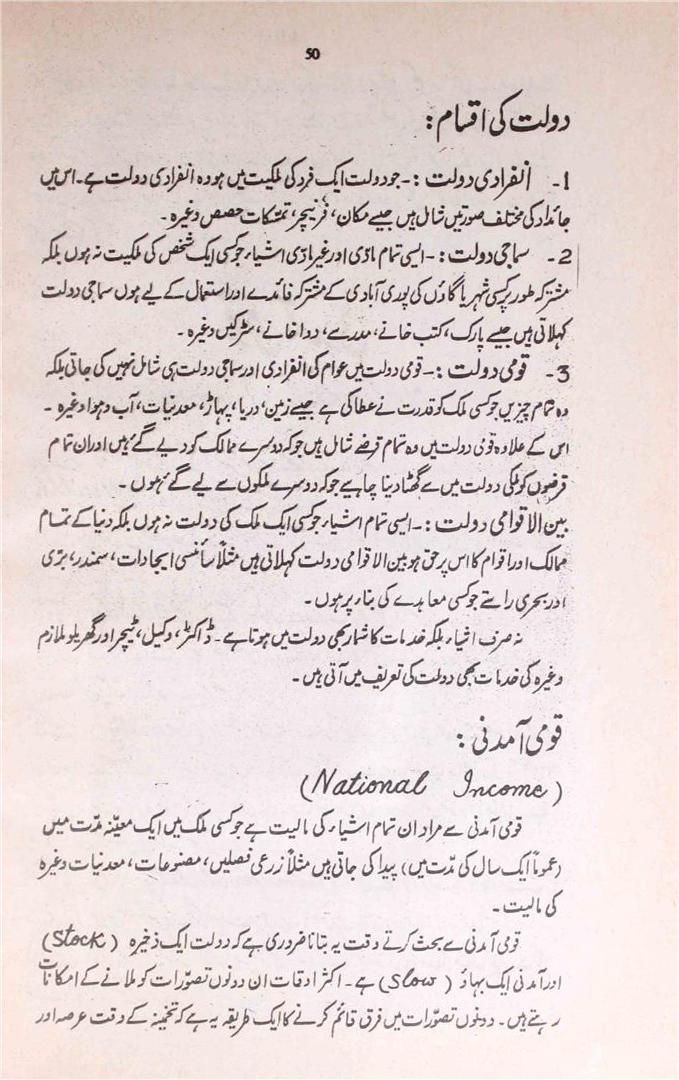 50
دولت کی اقسام:
1- انفرادی دولت :- جو دولت ایک فرد کی ملکیت میں ہو وہ انفرادی دولت ہے۔ اس میں
جائداد کی مختلف صورتیں شامل ہیں جیسے مکان، فرنیچر، تمسکات حصص وغیرہ۔
2- سماجی دولت :- ایسی تمام مادّی اور غیر مادّی اشیاء جو کسی ایک شخص کی ملکیت نہ ہوں بلکہ
مشترکہ طور پر کسی شہر یا گاؤں کی پوری آبادی کے مشترکہ فائدے اور استعمال کے لیے ہوں سماجی دولت
کہلاتی ہیں جیسے پارک، کتب خانے، مدرسے، دواخانے، سڑکیں وغیرہ۔
3- قومی دولت :- قومی دولت میں عوام کی انفرادی اور سماجی دولت ہی شامل نہیں کی جاتی بلکہ
وہ تمام چیزیں جو کسی ملک کو قدرت نے عطا کی ہے جیسے زمین، دریا، پہاڑ، معدنیات، آب و ہوا وغیرہ۔
اس کے علاوہ قومی دولت میں وہ تمام قرضے شامل ہیں جو کہ دوسرے ممالک کو دیے گئے ہیں اور ان تمام
قرضوں کو ملکی دولت میں سے گھٹا دینا چاہیے جو کہ دوسرے ملکوں سے لیے گئے ہوں۔
بین الاقوامی دولت :- ایسی تمام اشیاء جو کسی ایک ملک کی دولت نہ ہوں بلکہ دنیا کے تمام
ممالک اور اقوام کا اس پر حق ہو بین الاقوامی دولت کہلاتی ہیں مثلاً سائنسی ایجادات، سمندر، برّی
اور بحری راستے جو کسی معاہدے کی بناء پر ہوں۔
نہ صرف اشیاء بلکہ خدمات کا شمار بھی دولت میں ہوتا ہے۔ ڈاکٹر، وکیل، ٹیچر اور گھریلو ملازم
وغیرہ کی خدمات بھی دولت کی تعریف میں آتی ہیں۔
قومی آمدنی :
(National Income)
قومی آمدنی سے مراد ان تمام اشیاء کی مالیت ہے جو کسی ملک میں ایک معیّنہ مدّت میں
(عموماً ایک سال کی مدّت میں) پیدا کی جاتی ہیں مثلاً زرعی فصلیں، مصنوعات، معدنیات وغیرہ
کی مالیت۔
قومی آمدنی سے بحث کرتے وقت یہ بتانا ضروری ہے کہ دولت ایک ذخیرہ (Stock)
اور آمدنی ایک بہاؤ (Slow) ہے۔ اکثر اوقات ان دونوں تصوّرات کو ملانے کے امکانات
رہتے ہیں۔ دونوں تصوّرات میں فرق قائم کرنے کا ایک طریقہ یہ ہے کہ تخمینہ کے وقت عرصہ اور